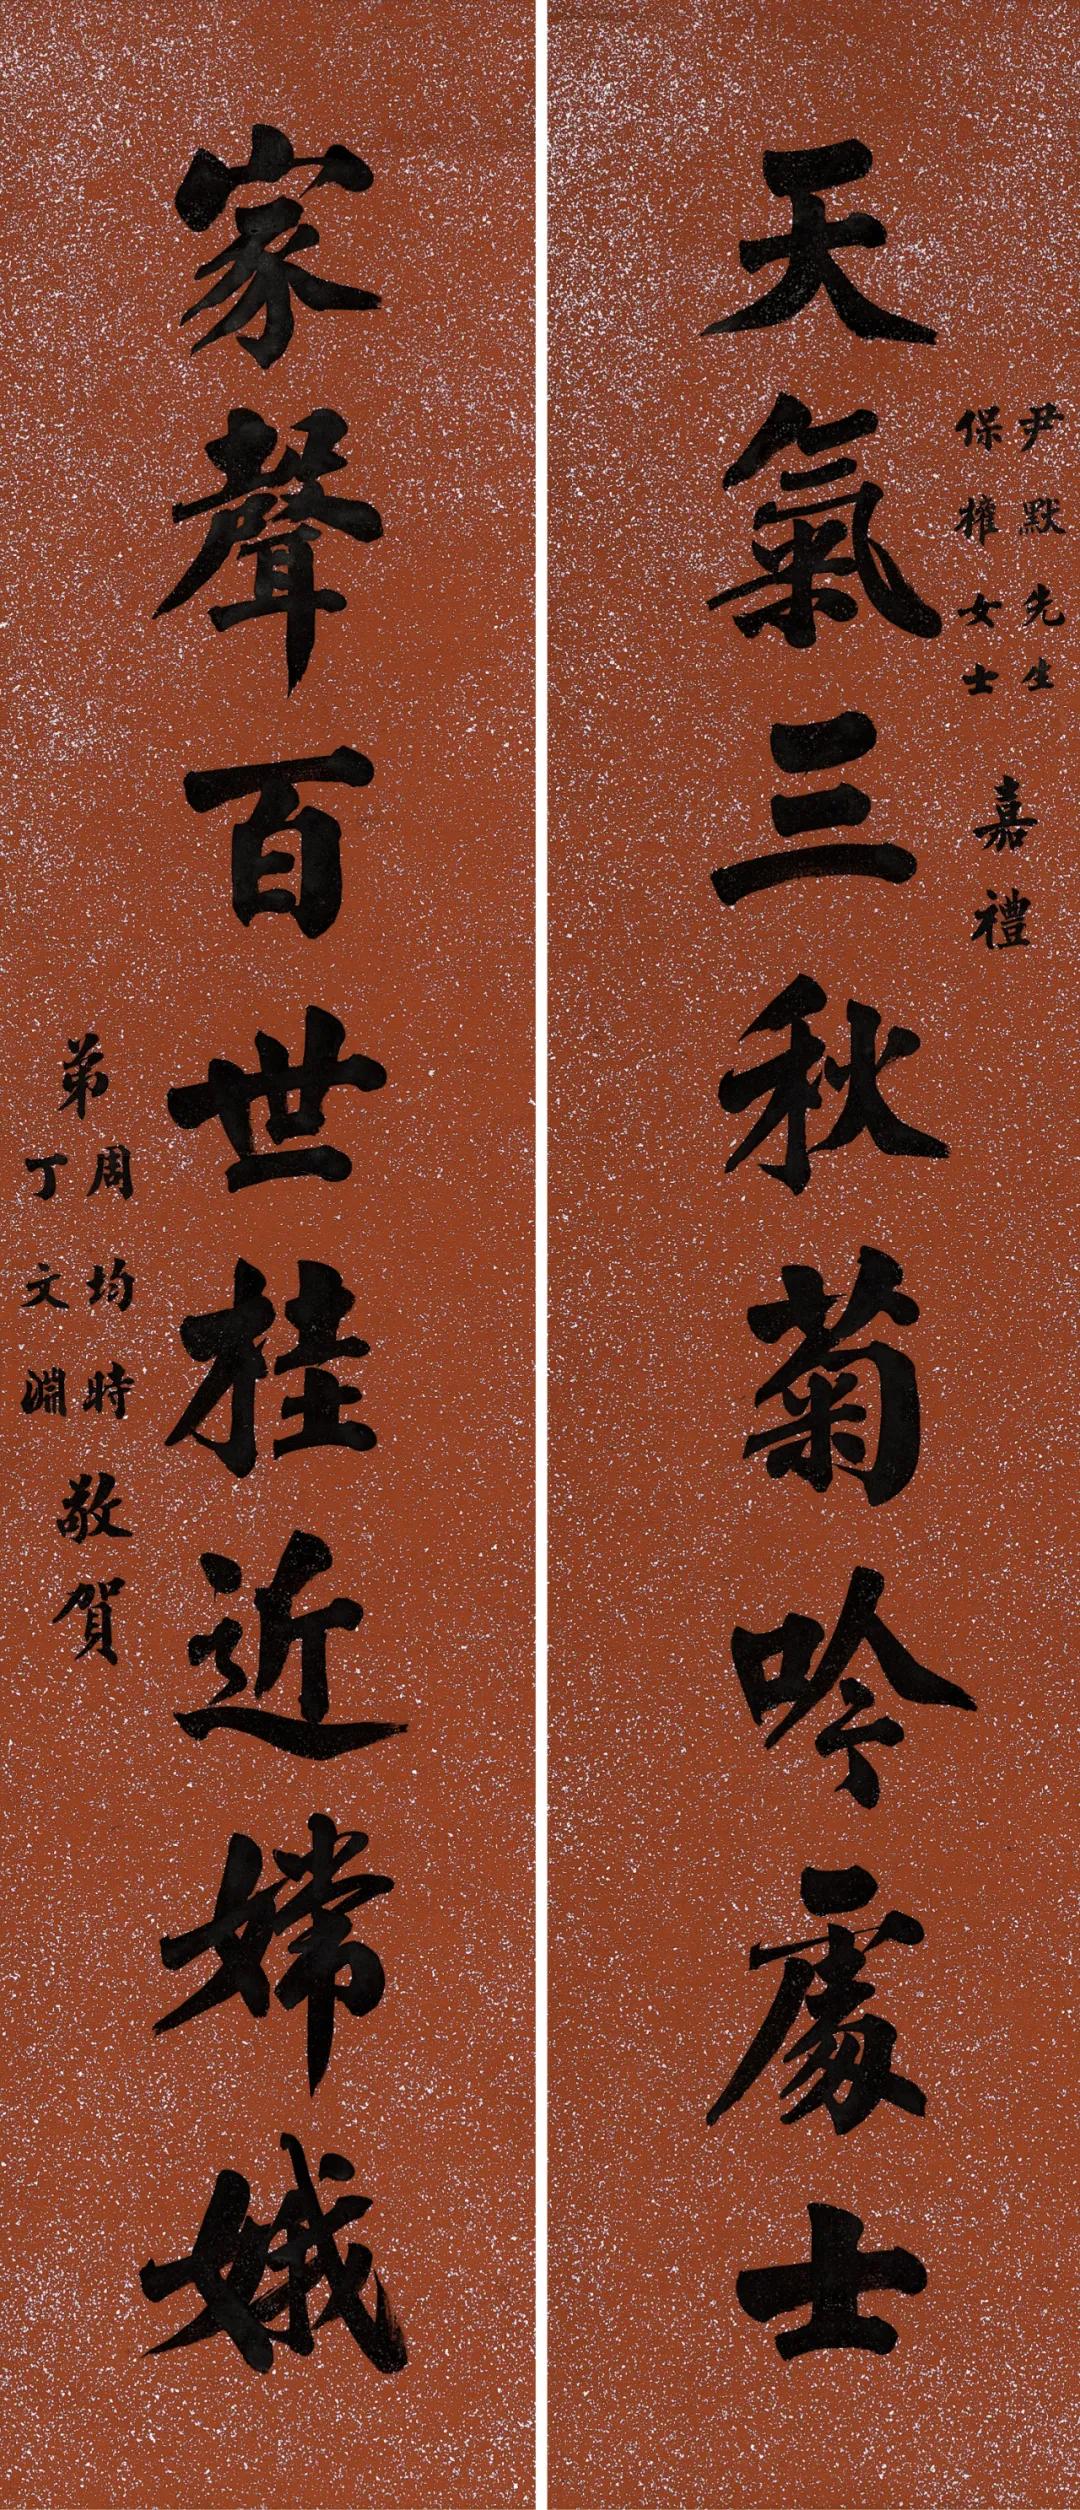 天氣三秋菊吟處士
尹默先生
保權女士
嘉禮
家聲百世桂近嫦娥
弟
周均時
丁文淵
敬賀